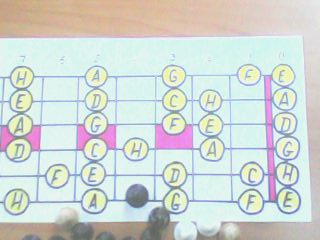 7 5 3 0
H A G F E
E D C H A
A G F E D
D C H A G
F E D C H
H A G F E